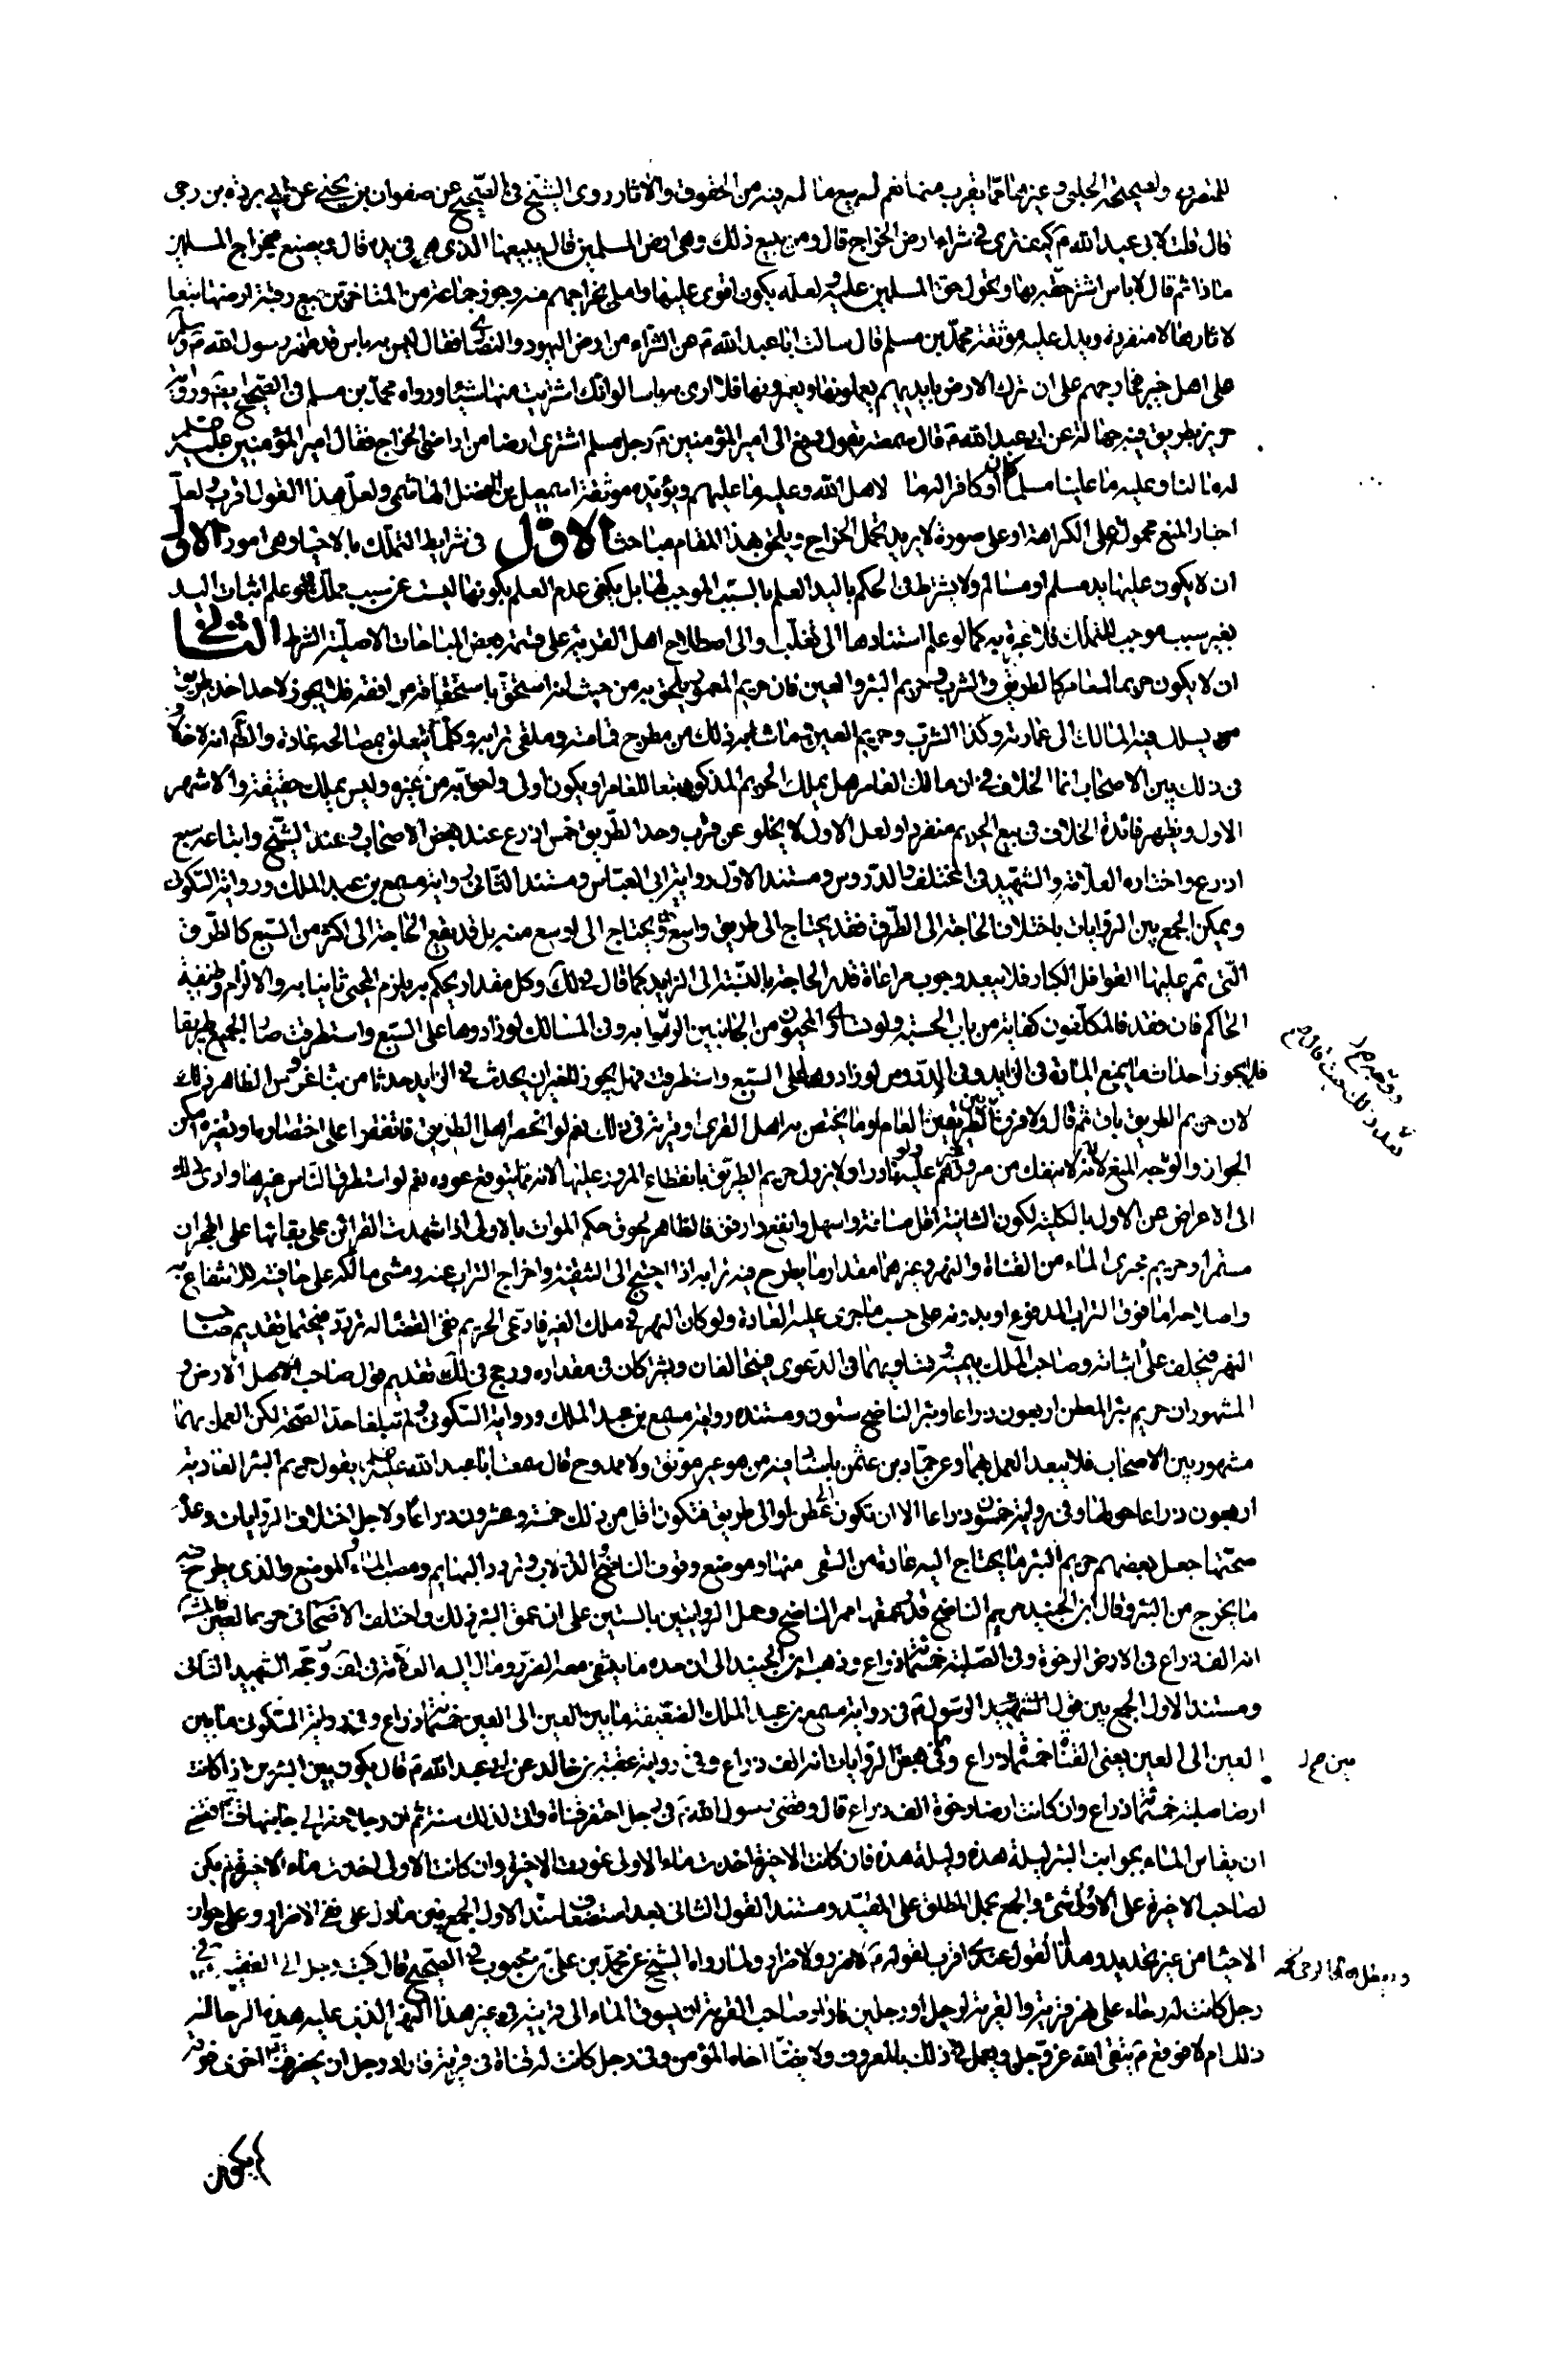 للمنصرية ولصحيحة الحلبي وغيرهما مما يقرب منهما نعم له بيع ماله فيه من الحقوق والاثار روى الشيخ في الصحيح عن صفوان بن يحيى عن ابي بردة بن رجا
قال قلت لابي عبد الله ع كيف ترى في شراء ارض الخراج قال ومن يبيع ذلك وهي ارض المسلمين قال يبيعها الذي هي في يده قال ويصنع بخراج المسلمين
ماذا ثم قال لا باس اشتر حقه بها ويحول حق المسلمين عليه ولعله يكون اقوى عليها واملى بخراجهم منه وجوز جماعة من المتاخرين بيع رقبة ارضها تبعا
لاثارها لا منفردة ويدل عليه موثقة محمد بن مسلم قال سالت ابا عبد الله ع عن الشراء من ارض اليهود والنصارى فقال ليس به باس قد ظهر رسول الله ص
على اهل خيبر فخارجهم على ان ترك الارض بايديهم يعملونها ويعمرونها فلا ارى بها باسا لو انك اشتريت منها شيئا ورواه محمد بن مسلم في الصحيح
حريز بطريق فيه جهالة عن ابي عبد الله ع قال سمعته يقول رفع الى امير المؤمنين ع رجل مسلم اشترى ارضا من اراضي الخراج فقال امير المؤمنين عليه
له ما لنا وعليه ما علينا مسلما كان او كافرا له ما لاهل الله وعليه ما عليهم ويؤيده موثقة اسمعيل بن الفضل الهاشمي ولعل هذا القول اقرب ولعل
اخبار المنع محمولة على الكراهة او على صورة لا يريد تحمل الخراج ويلحق بهذا المقام مباحث الاول في شرايط التملك بالاحياء وهي امور الاول
ان لا يكون عليها يد مسلم او مسالم ولا يشترط في الحكم باليد العلم بالسبب الموجب لها بل يكفي عدم العلم بكونها ليست عن سبب مملك فلو علم اثبات اليد
بغير سبب موجب للتملك فلا عبرة به كما لو علم استنادها الى تغلب والى اصطلاح اهل القرية على قسمة بعض المباحات الاصلية الشرط الثاني
ان لا يكون حريما لعامر كالطريق والشرب وحريم البئر والعين فان حريم المعمور يلحق به من حيث انه استحق باستحقاقه من مرافقه فلا يجوز لاحد اخذ طريق
يسلك فيه المالك الى عمارته وكذا الشرب وحريم العين وما شابه ذلك من مطرح قمامته وملقى ترابه وكلما يتعلق بمصالحه عادة والظاهر انه لا خلاف
في ذلك بين الاصحاب انما الخلاف في ان مالك العامر هل يملك الحريم المذكور تبعا للعامر او يكون اولى واحق به من غيره وليس بملك حقيقة والاشهر
الاول ويظهر فائدة الخلاف في بيع الحريم منفردا ولعل الاول لا يخلو عن قرب وحد الطريق خمس اذرع عند بعض الاصحاب وعند الشيخ واتباعه سبع
اذرع واختاره العلامة والشهيد في المختلف والدروس ومستند الاول رواية ابي العباس ومستند الثاني رواية مسمع بن عبد الملك ورواية السكوني
ويمكن الجمع بين الروايات باختلاف الحاجة الى الطرق فقد يحتاج الى طريق واسع وقد يحتاج الى اوسع منه بل قد يقع الحاجة الى اكثر من السبع كالطرق
التي تمر عليها القوافل الكبار فلا يبعد وجوب مراعاة قدر الحاجة بالنسبة الى الزايد كما قال في لك وكل مقدار يحكم به يلزم المحيي ثانيا به والالزام وظيفة
الحاكم فان فقد فالمكلفون كفاية من باب الحسبة ولو تساوى المحيون من الجانبين الزموا به وفي المسالك لو زادوها على السبع واستطرقت صار الجميع طريقا
فلا يجوز احداث ما يمنع المارة في الزايد وفي الدروس لو زادوها على السبع واستطرقت فهل يجوز للغير ان يحدث في الزايد حدثا من بناء وغرس الظاهر ذلك
لان حريم الطريق باق ثم قال ولا فرق بين الطريق العام او ما يختص به اهل القرى او قرية في ذلك نعم لو انحصر اهل الطريق فاتفقوا على اختصاره او تغيره امكن
الجواز والوجه المنع لانه لا ينفك من مرور غيرهم عليه ولو نادرا ولا يزول حريم الطريق بانقطاع المرور عليها لانه مما يتوقع عوده نعم لو استطرق الناس غيرها وادى ذلك
الى الاعراض عن الاول بالكلية لكون الثانية اقل مسافة واسهل وانفع وارفق فالظاهر لحوق حكم الموات بالاولى اذا شهدت القرائن على بقائها على الهجران
مستمرا وحريم مجرى الماء من القناة والنهر وغيرهما مقدار ما يطرح فيه ترابه اذا احتيج الى التنقية واخراج التراب عنه ومشى مالكه على حافتيه للانتفاع به
واصلاحه اما فوق التراب المدفوع او بدونه على حسب ما جرى عليه العادة ولو كان النهر في ملك الغير فادعى الحريم ففي القضاء له تردد فيحتمل تقديم صاحب
النهر فيحلف على اثباته وصاحب الملك بيمينه وتساويهما في الدعوى فيتحالفان ويشتركان في مقداره ورجح في لك تقديم قول صاحب اصل الارض و
المشهور ان حريم بئر المعطن اربعون ذراعا وبئر الناضح ستون ومستنده رواية مسمع بن عبد الملك ورواية السكوني ولم تبلغا حد الصحة لكن العمل بهما
مشهور بين الاصحاب فلا يبعد العمل بهما وعن حماد بن عثمن باسناد فيه من هو غير موثق ولا ممدوح قال سمعت ابا عبد الله عليه السلام يقول حريم البئر العادية
اربعون ذراعا حولها وفي رواية خمسون ذراعا الا ان تكون الى عطن او الى طريق فتكون اقل من ذلك خمسة وعشرون ذراعا ولاجل اختلاف الروايات وعدم
صحتها جعل بعضهم حريم البئر ما يحتاج اليه عادة من السقى منها وموضع وقوف الناضح والدولاب وتردد البهايم ومصب الماء والموضع الذي يطرح فيه
ما يخرج من البئر وقال ابن الجنيد حريم الناضح قدر عمقها ممر الناضح وحمل الروايتين بالستين على ان عمق البئر ذلك واختلف الاصحاب في حريم العين فالمشهور
انه الف ذراع في الارض الرخوة وفي الصلبة خمسمائة ذراع وذهب ابن الجنيد الى ان حده ما ينتفي معه الضرر ومال اليه العلامة في لف ورجحه الشهيد الثاني
ومستند الاول الجمع بين قول الرسول ص في رواية مسمع بن عبد الملك الضعيفة ما بين العين الى العين خمسمائة ذراع وفي رواية السكوني ما بين
العين الى العين يعني القناة خمسمائة ذراع وفي بعض الروايات انه الف ذراع وفي رواية عقبة بن خالد عن ابي عبد الله ع قال يكون بين البئرين اذا كانت
ارضا صلبة خمسمائة ذراع وان كانت ارضا رخوة الف ذراع قال وقضى رسول الله ص في رجل احتفر قناة واتى لذلك سنة ثم ان رجلا حفر الى جانبها قناة فقضى
ان يقاس الماء بجوانب البئر ليلة هذه وليلة هذه فان كانت الاخيرة اخذت ماء الاولى عورت الاخيرة وان كانت الاولى اخذت ماء الاخيرة لم يكن
لصاحب الاخيرة على الاولى شئ والجمع بحمل المطلق على المقيد ومستند القول الثاني بعد استضعاف مستند الاول الجمع بين ما دل على نفي الاضرار وعلى جواز
الاحياء من غير تحديد وهذا القول عندي اقرب لقوله ص لا ضرر ولا ضرار ولما رواه الشيخ عن محمد بن علي بن محبوب في الصحيح قال كتب رجل الى الفقيه ع في
رجل كانت له رحاء على نهر قرية والقرية لرجل او رجلين فاراد صاحب القرية ان يسوق الماء الى قريته في غير هذا النهر الذي عليه هذه الرحا له
ذلك ام لا فوقع ع يتقى الله عز وجل ويعمل في ذلك بالمعروف ولا يضار اخاه المؤمن وفي رجل كانت له قناة في قرية فاراد رجل ان يحفر قناة اخرى فوقه
بين صح
يكون